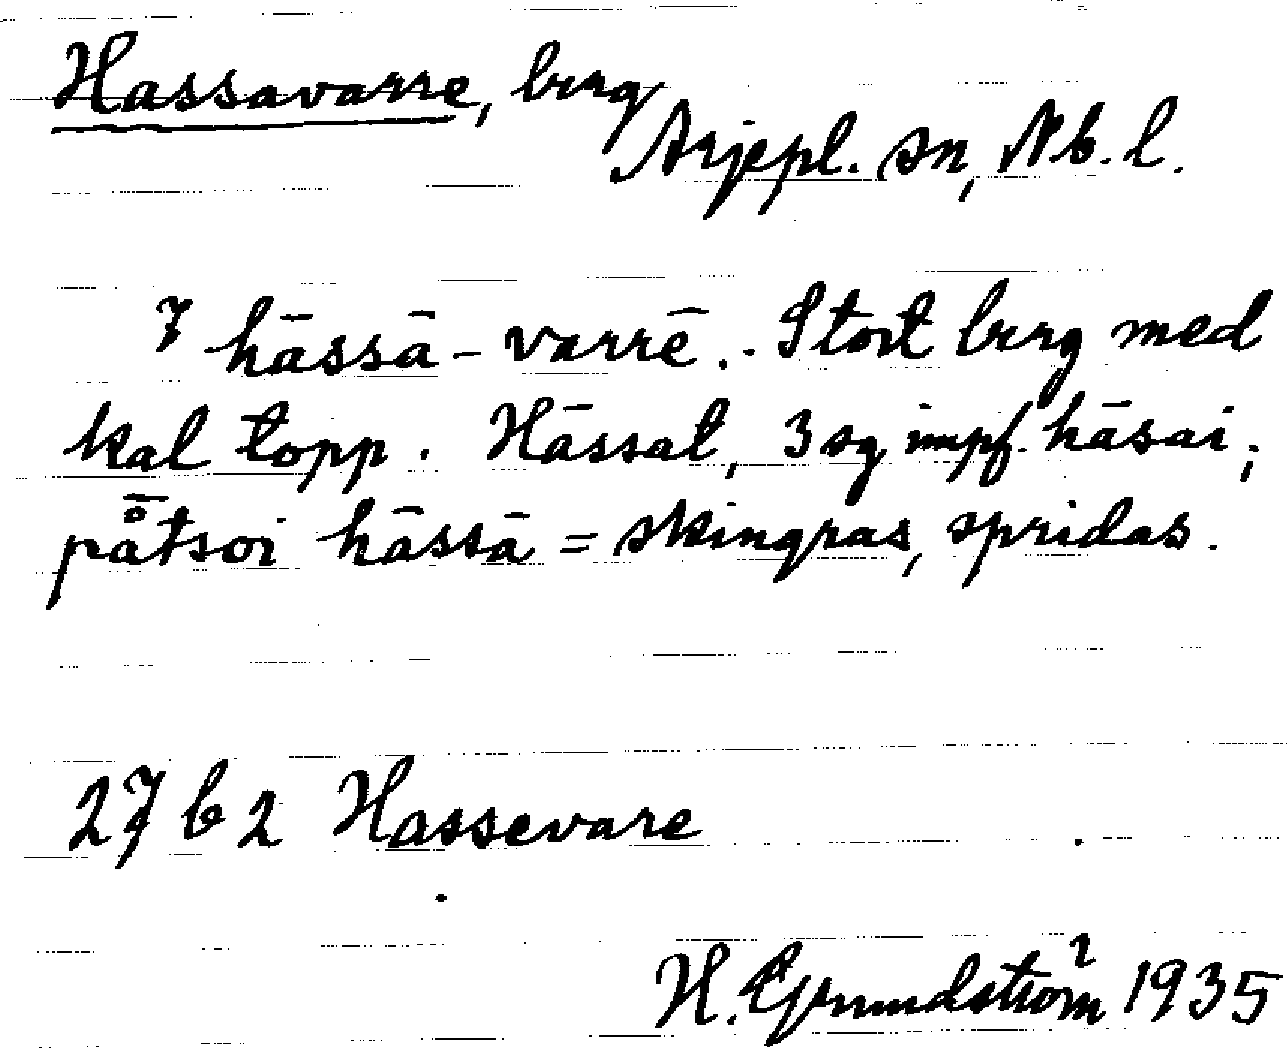 Hassavarre, berg
Arjepl. sn, Nb. l.
7 hāssā-varrē. - Stort berg med
kal topp. Hāssat, 3 sg impf. hāsai;
på̄tsoi hāssā = skingras, spridas.
27 b 2 Hassevare
H. Grundström 1935